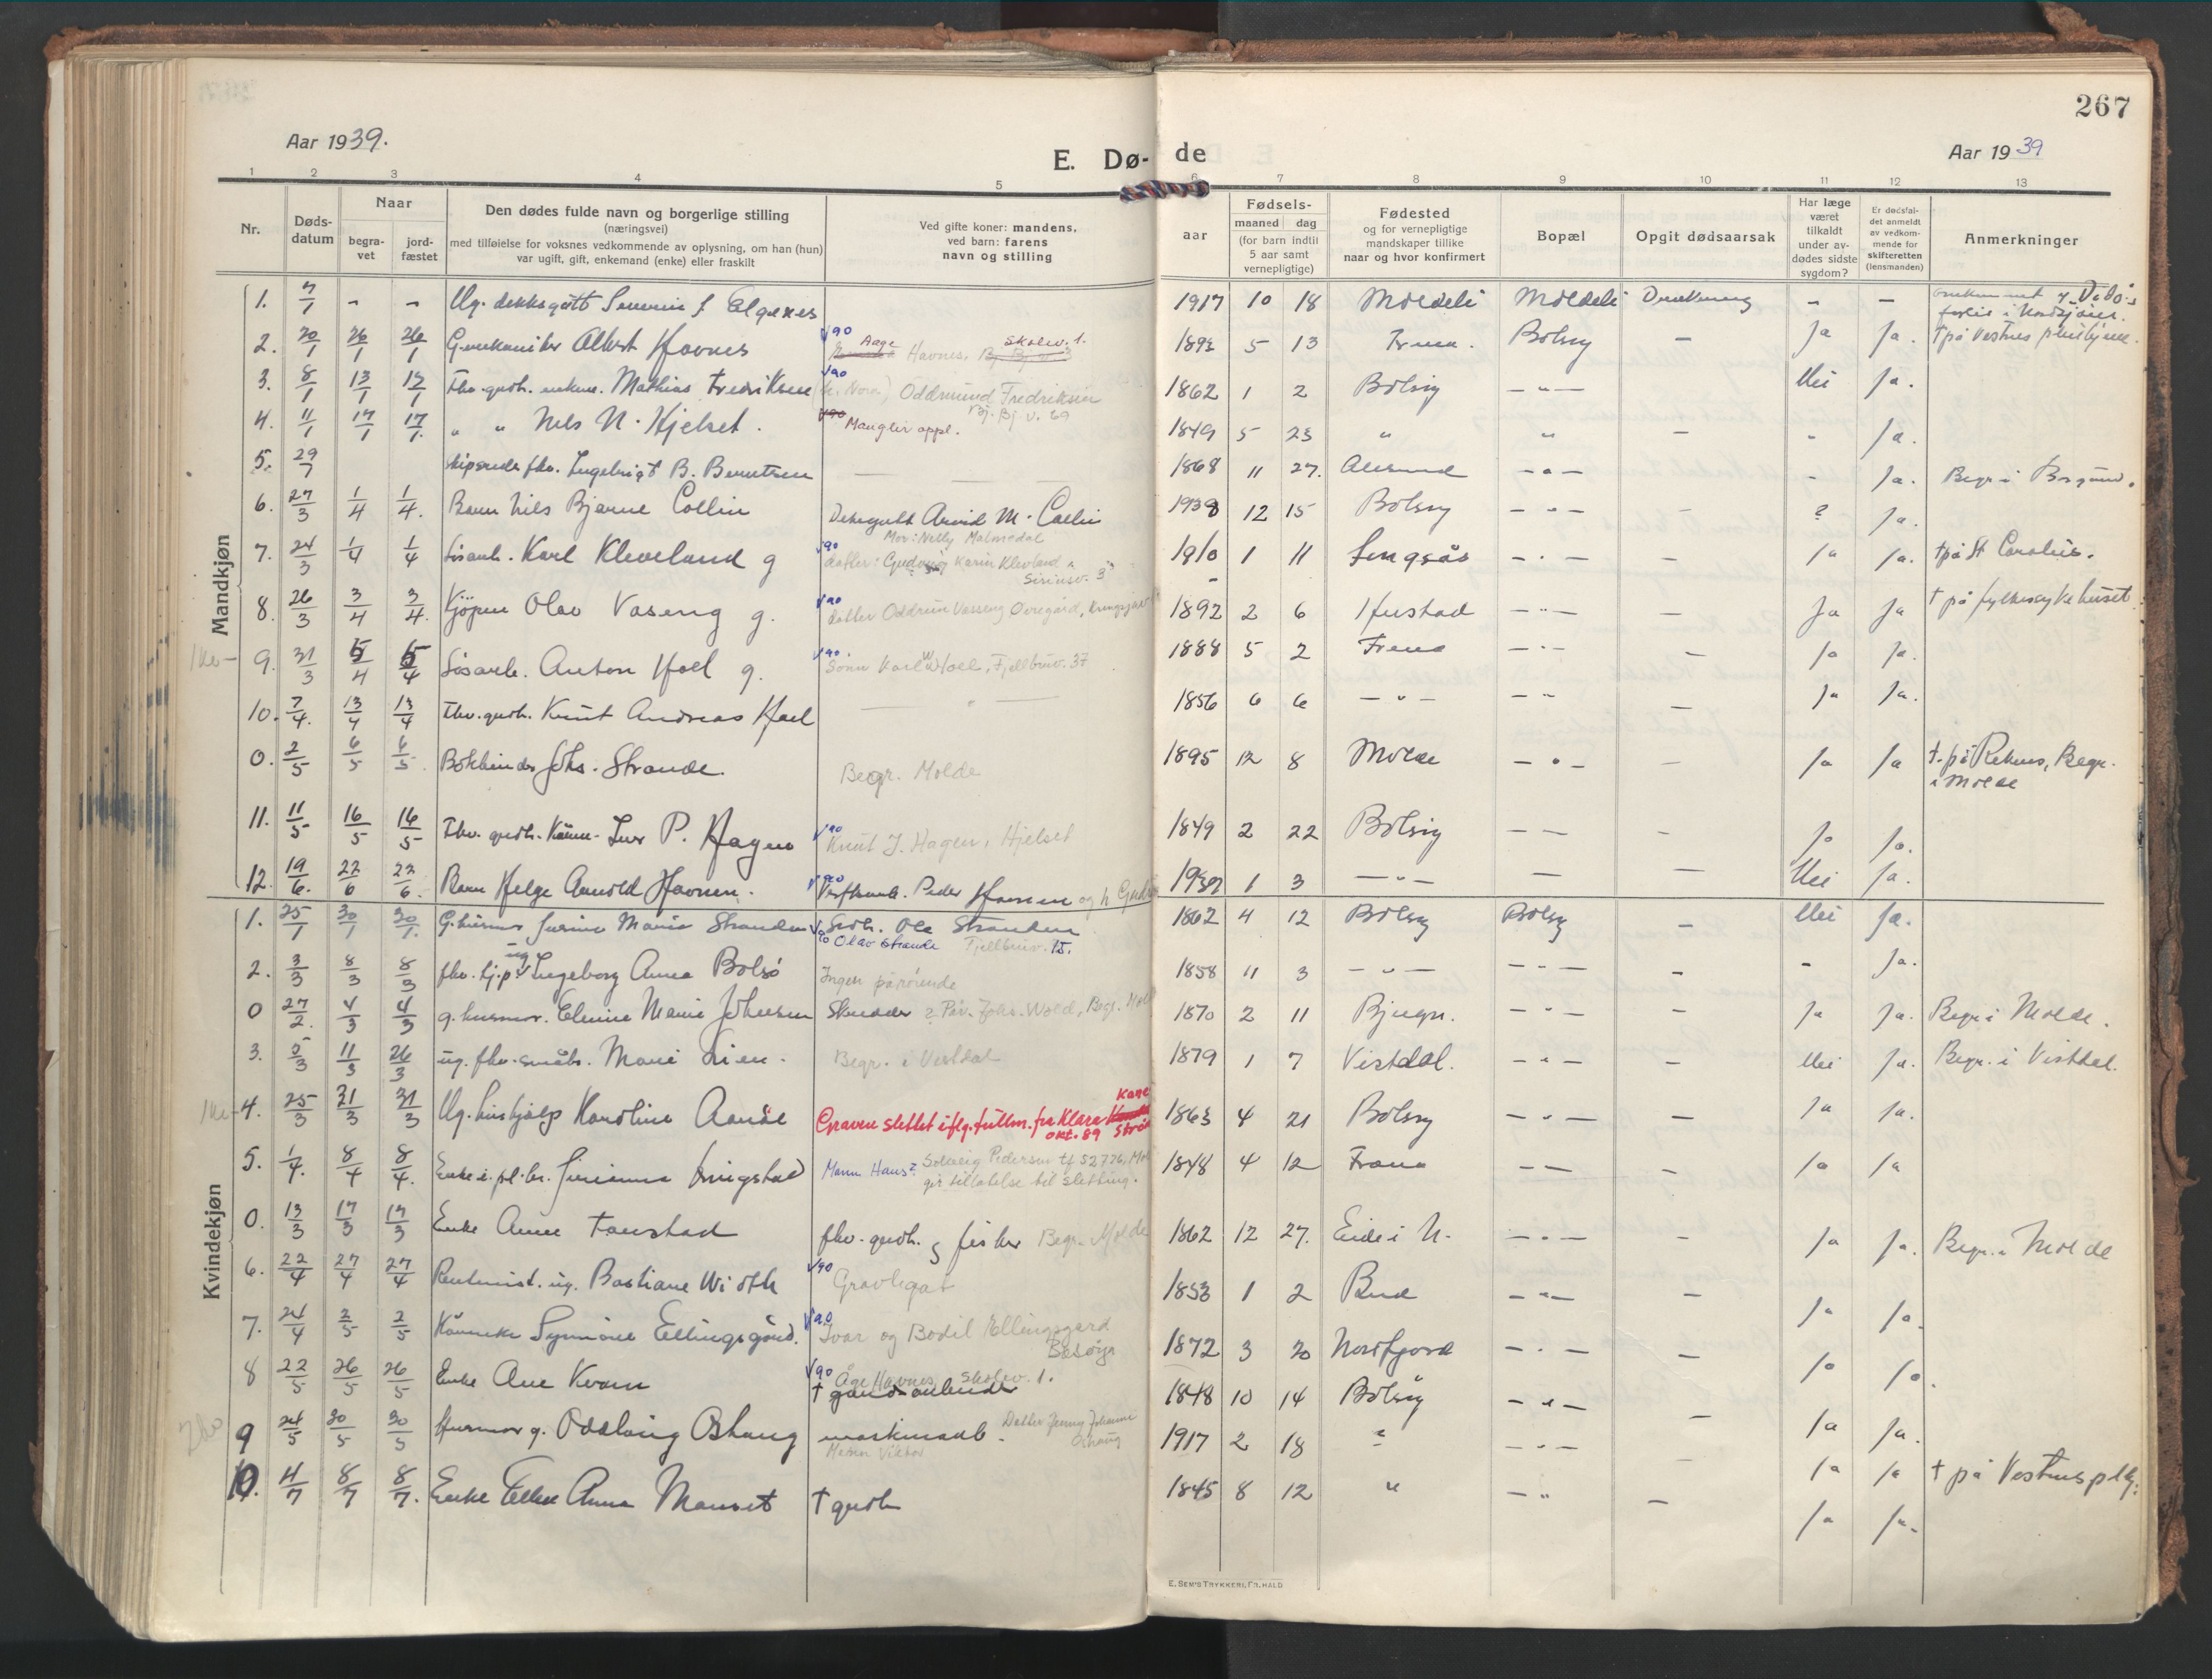 267
Aar 1939.
E. Dø- de
Aar 1939
1 2 3 4 5 6 7 8 9 10 11 12 13
Nr.
Døds-
datum
Naar
begra-
vet
jord-
fæstet
Den dødes fulde navn og borgerlige stilling
(næringsvei)
med tilføielse for voksnes vedkommende av oplysning, om han (hun)
var ugift, gift, enkemand (enke) eller fraskilt
Ved gifte koner: mandens,
ved barn: farens
navn og stilling
aar
Fødsels-
maaned dag
(for barn indtil
5 aar samt
vernepligtige)
Fødested
og for vernepligtige
mandskaper tillike
naar og hvor konfirmert
Bopæl
Opgit dødsaarsak
Har læge
været
tilkaldt
under av-
dødes sidste
sygdom?
Er dødsfal-
det anmeldt
av vedkom-
mende for
skifteretten
(lensmanden)
Anmerkninger
Mandkjøn
1. 7/1 - - Ug. dekksgutt 1917 10 18 Moldeli Moldeli - - forlis i Nordsjøen.
2. 20/1 26/1 26/1 Albert Havnes V90 Aage Havnes, Skolev. 1. 1893 5 13 Fræna. Bolsøy - Ja Ja. † på Vestnes pleiehjem.
3. 8/1 13/1 13/1 Fhv. gudh. enkem. Mathias Fredriksen V90 Oddmund Fredriksen Bj. Bj. v. 69 1862 1 2 Bolsøy - " - Nei Ja.
4. 11/1 17/1 17/1. " " Nils N. Hjelset. V90 Mangler oppl. 1849 5 23 " " - " Ja.
5. 29/7 fhv. Ingebrigt B. Berntsen - 1868 11 27. Ålesund - " - - Ja. Begr. i Borgund.
6. 27/3 1/4 1/4. Barn Nils Bjarne Collin Arvid M. Collin Mor: Nelly Malmedal 1938 12 15 Bolsøy - " - ? Ja.
7. 24/3 1/4 1/4 Løsarb. Karl Kleveland g V90 datter: Gudveig Karin Klevland Siriusv. 3 1910 1 11 Singsås - " - - Ja Ja. † på St. Carolus.
8. 26/3 3/4 3/4. Kjøpm Olav Vaseng g. V90 datter Oddrun Vaseng Øvregård, 1892 2 6 Hustad - " - - Ja Ja † på fylkessykehuset
9. 31/3 5/4 5/4 Løsarb. Anton Hoel g. V90 Sønn Karl W Hoel, Fjellbruv. 37 1888 5 2 Fræna - " - - Ja Ja.
10. 7/4. 13/4 13/4 Fhv. gudh. Knut Andreas Hoel - " - 1856 6 6 - " - - " - Ja Ja.
0. 2/5 6/5 6/5. Bokbinder Johs. Strande. Begr. Molde 1895 12 8 Molde - " - - Ja Ja †. på Reknes, Begr. i Molde
11. 11/5 16/5 16/5 Fhv. gudh. P. Hagen V90 Knut J. Hagen, Hjelset 1849 2 22 Bolsøy - - - Ja Ja.
12. 19/6. 22/6 22/6. Barn Helge Arnold Hansen. V90 Peder Hansen og h 1939 1 3 - " - - - Nei Ja.
Kvindekjøn
1. 25/1 30/1 30/1. G. husmor Marie Stranden V90 Gudh. Ole Stranden Olav Strande Fjellbruv. 15. 1862 4 12 Bolsøy Bolsøy - Nei Ja.
2. 3/3 8/3 8/3 fhv. ug Ingeborg Anna Bolsø Ingen pårørende 1858 11 3 - " - - " - - - Ja.
0 27/2. 4/3 4/3 g. husmor. Marie Johnsen Skredder ? Pår. Johs. Wold, Begr. Mol 1870 2 11 Bjugn. - " - - Ja Ja. Begr. i Molde.
3. 5/3 11/3 26/3 ug. fhv. småbr. Marie Lien. Begr. i Vistdal 1879 1 7 Vistdal. - " - - Nei Ja. Begr. i Vistdal.
4. 25/3 31/3 31/3 Ug. hushjelp Karoline Aandal Graven slettet iflg. tillm. fra Klara Kane okt. 89 1863 4 21 Bolsøy - " - - Ja Ja.
5. 1/4. 8/4 8/4. Enke Mann Hans? Solveig Pedersen tf 52726, Mol gir tillatelse til sletting. 1848 4 12 Fræna - - - Ja Ja
0. 13/3 17/3 17/3 Enke Anne Tanstad fhv. gudh. og fisker Begr. Molde 1862 12 27. Eide i N. - " - - Ja Ja. Begr. i Molde
6. 22/4 27/4 27/4 Rentenist. ug. Bastiane Wi oth V90 Gravlegat 1853 1 2 Bud - " - - Ja Ja.
7. 24/4 2/5 2/5 Ellingsgård. V90 Ivar og Bodil Ellingsgard Bolsøya 1872 3 20 Nordfjord - " - - Ja Ja.
8 22/5 26/5 26/5 Enke Ane Kvam V90 Åge Havnes, Skolev. 1. † gårdarbeider 1848 10 14 Bolsøy - " - - Ja Ja.
9 24/5 30/5 30/5 Husmor g. Oddlaug Oshaug maskinarb. Datter Jenny Johanne Oshaug Mann Viktor 1917 2 18 " - " - - Ja Ja † på Vestnes plhj.
10. 4/7 8/7 8/7. Enke Ellen Anna Mauset † gudh 1845 8 12 " - " - Ja Ja.
E. SEM'S TRYKKERI, FR.HALD